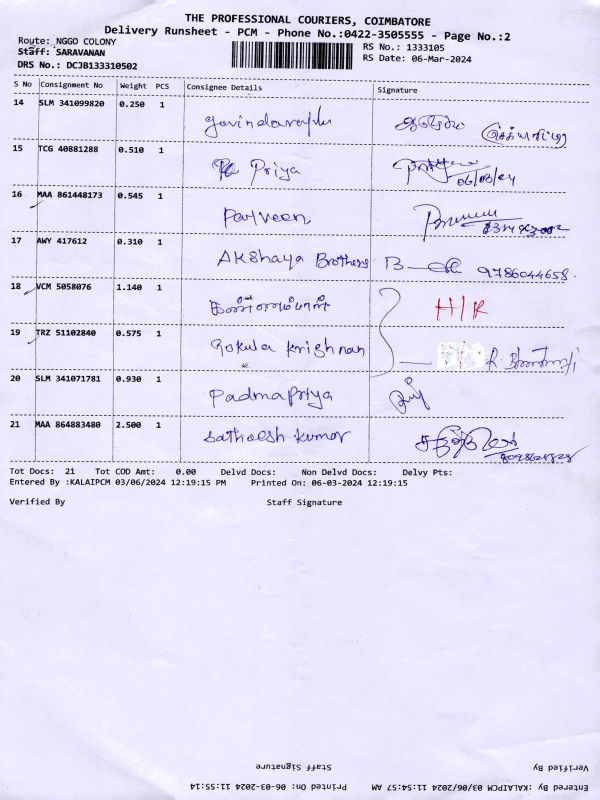 THE PROFESSIONAL COURIERS, COIMBATORE
Delivery Runsheet - PCM - Phone No.:0422-3505555 - Page No.:2
Route: NGGO COLONY
RS No.: 1333105
Staff: SARAVANAN
RS Date: 06-Mar-2024
DRS No.: DCJB133310502
S No Consignment No Weight PCS Consignee Details Signature
14 SLM 341099820 0.250 1 Govindarajulu
15 TCG 40881288 0.510 1 Priya 06/03/24
16 MAA 861448173 0.545 1 Parveen
17 AWY 417612 0.310 1 Akshaya Brothers 9786044658
18 VCM 5058076 1.140 1 H/R
19 TRZ 51102840 0.575 1 Gokula Krishnan
20 SLM 341071781 0.930 1 Padmapriya
21 MAA 864883480 2.500 1 Satheesh Kumar
Tot Docs: 21 Tot COD Amt: 0.00 Delvd Docs: Non Delvd Docs: Delvy Pts:
Entered By :KALAIPCM 03/06/2024 12:19:15 PM Printed On: 06-03-2024 12:19:15
Verified By Staff Signature
Verified By Staff Signature
Entered By :KALAIPCM 03/06/2024 11:54:57 AM Printed On: 06-03-2024 11:55:14